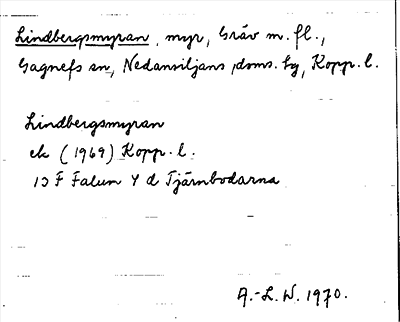 Lindbergsmyran, myr, Gräv m. fl.,
Gagnefs sn, Nedansiljans doms. hg, Kopp. l.
Lindbergsmyran
ek (1969) Kopp. l.
13 F Falun 4 d Tjärnbodarna
A.-L. W. 1970.